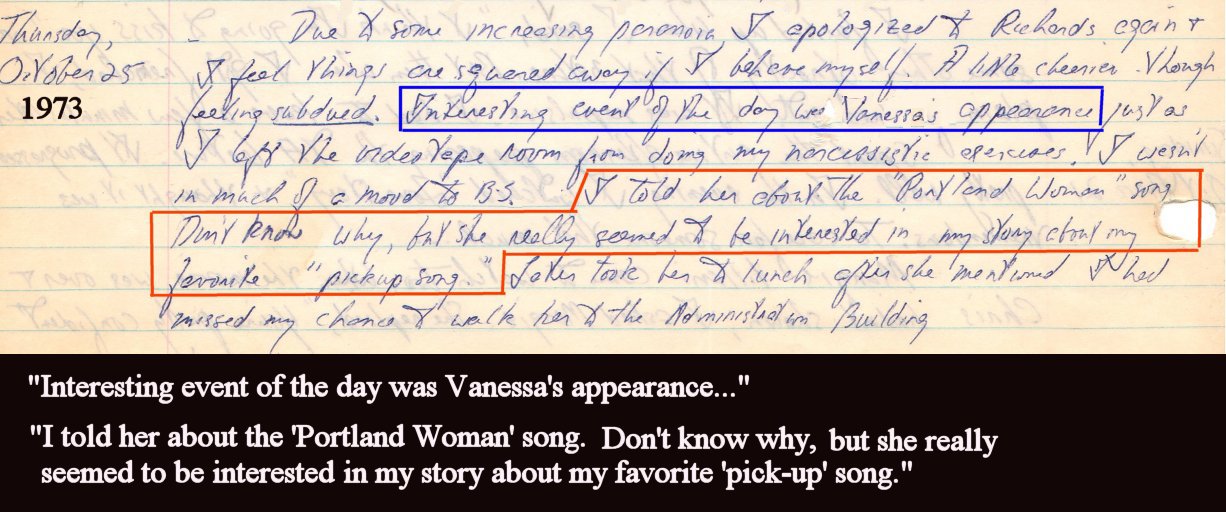 Thursday, - Due to some increasing paranoia I apologized to Richards again +
October 25 I feel things are squared away if I behave myself. A little cheerier though
1973 feeling subdued. Interesting event of the day was Vanessa's appearance just as
I left the videotape room from doing my narcissistic exercises. I wasn't
in much of a mood to B.S. I told her about the "Portland Woman" song
Don't know why, but she really seemed to be interested in my story about my
favorite "pickup song." Later took her to lunch after she mentioned I had
missed my chance to walk her to the Administration Building
"Interesting event of the day was Vanessa's appearance..."
"I told her about the 'Portland Woman' song. Don't know why, but she really
seemed to be interested in my story about my favorite 'pick-up' song."